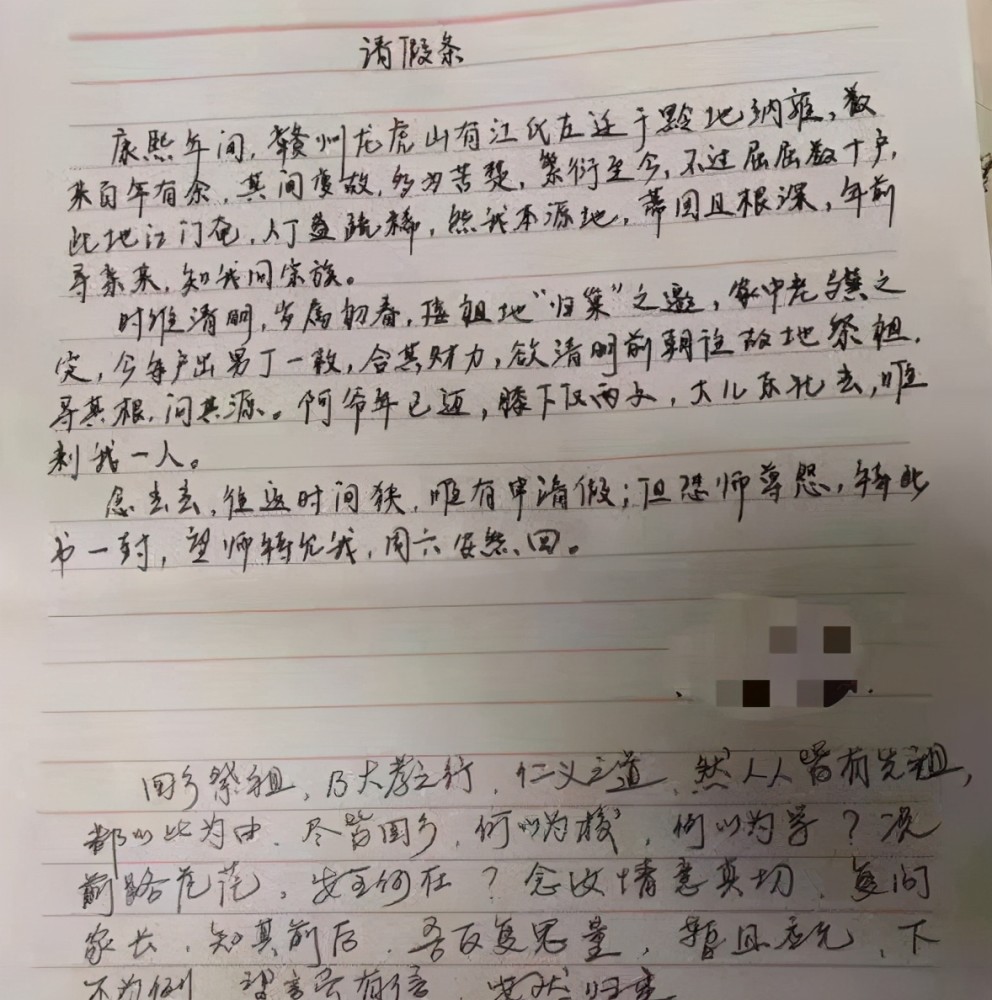 请假条
康熙年间，赣州龙虎山有江氏左迁于黔地纳雍，数
来百年有余，其间变故，多为苦楚，繁衍至今，不过屈屈数十户，
此地江门奄，人丁益疏稀，然我本源地，蒂固且根深，年前
寻亲来，知我同宗族。
时维清明，岁属初春，接祖地“归巢”之邀，家中老与之
定，今每户出男丁一数，合其财力，欲清明前朝往故地祭祖，
寻其根，问其源。阿爷年已迈，膝下仅两文，大儿东北去，唯
剩我一人。
念去去，往返时间狭，唯有申请假；但恐师尊怨，特此
书一封，望师特允我，周六安然回。
回乡祭祖，乃大孝之行，仁义之道，然人人皆有先祖，
都以此为由，尽皆回乡，何以为校，何以为学？况
前路茫茫，安全何在？念汝情意真切，复问
家长，知其前后，吾反复思量，暂且应允，下
不为例，望言而有信，安然归来